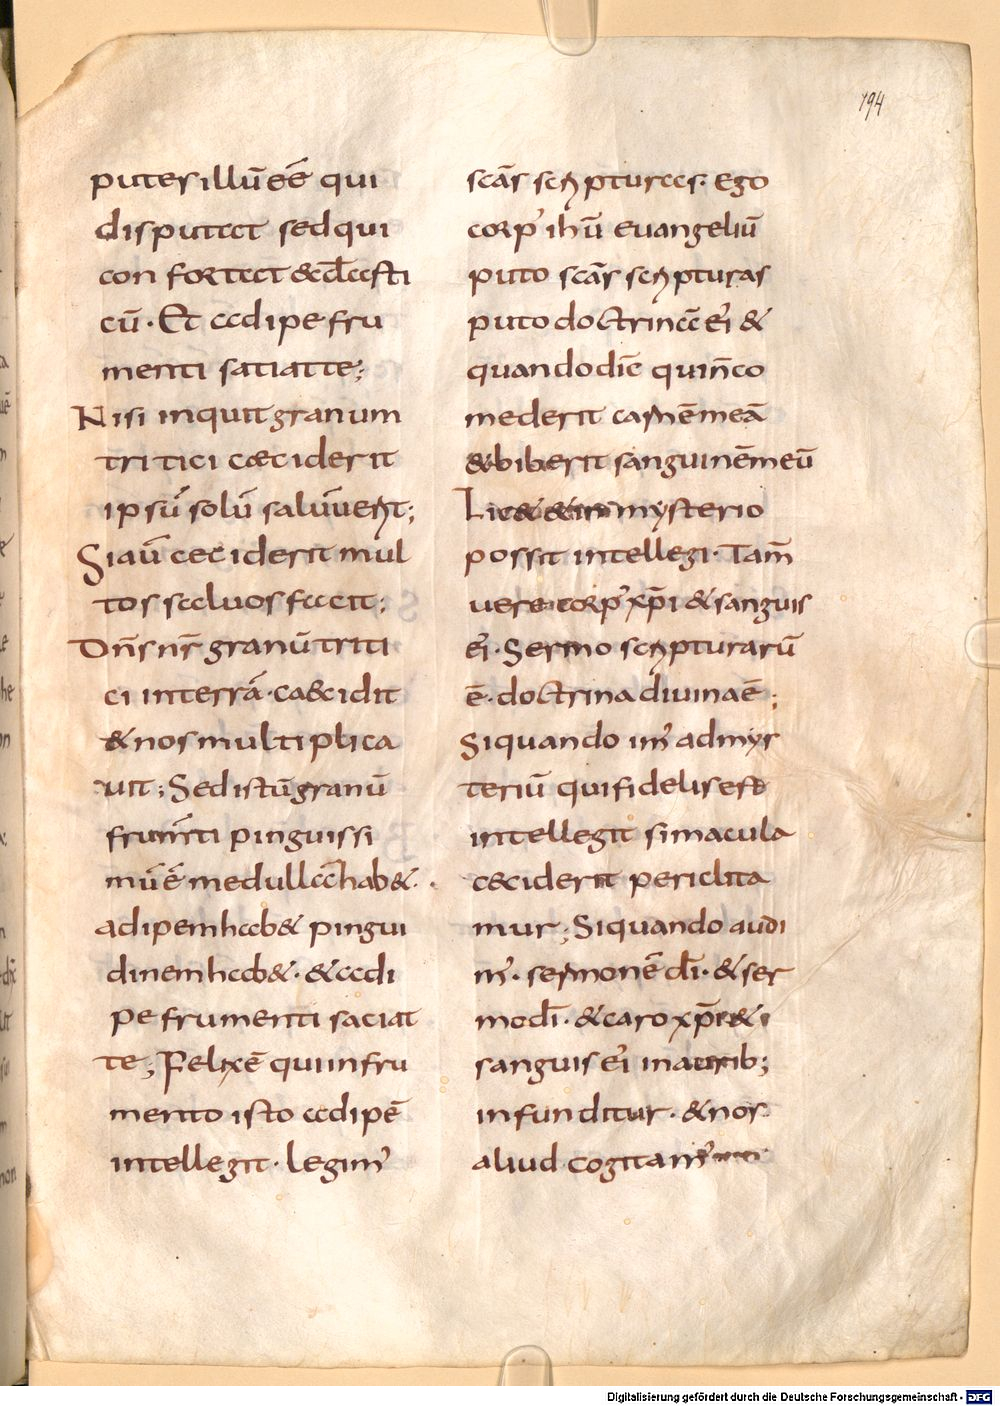 194
puter illū eē qui
disputat sed qui
con fortat & delecsti
cū· Et adipe fru
menti satiat te;
Nisi inquit granum
tritici caeciderit
ipsū solū saluū erit;
Si aū ceciderit mul
tos saluos facit;
Dn̄s nr̄ granū triti
ci in terrā· caecidit
& nos multiplica
vit; Sed istū granū
frum̄ti pinguissi
mū ē medullā hab&·
adipem hab& pingui
dinem hab&· & adi
pe frumenti saciat
te; Felix ē qui in fru
mento isto adipē
intellegit· legim᾽
scās scripturas· Ego
corp᾽ ihū euangeliū
puto scās scripturas
puto doctrinā ei᾽ &
quando dic̄ qui n̄ co
mederit carnē meā
& biberit sanguinē meū
Lic& & in mysterio
possit intellegi· Tam̄
vere corp᾽ xp̄i & sanguis
ei᾽· Sermo scripturarū
ē· doctrina divina ē;
Si quando im᾽ ad mys
teriū qui fidelis est
intellegit si macula
ceciderit periclita
mur; Si quando audi
m᾽· sermonē dī· & ser
mo dī· & caro xp̄i &
sanguis ei᾽ in aurib;
infunditur· & nos
aliud cogitam᾽
Digitalisierung gefördert durch die Deutsche Forschungsgemeinschaft - DFG